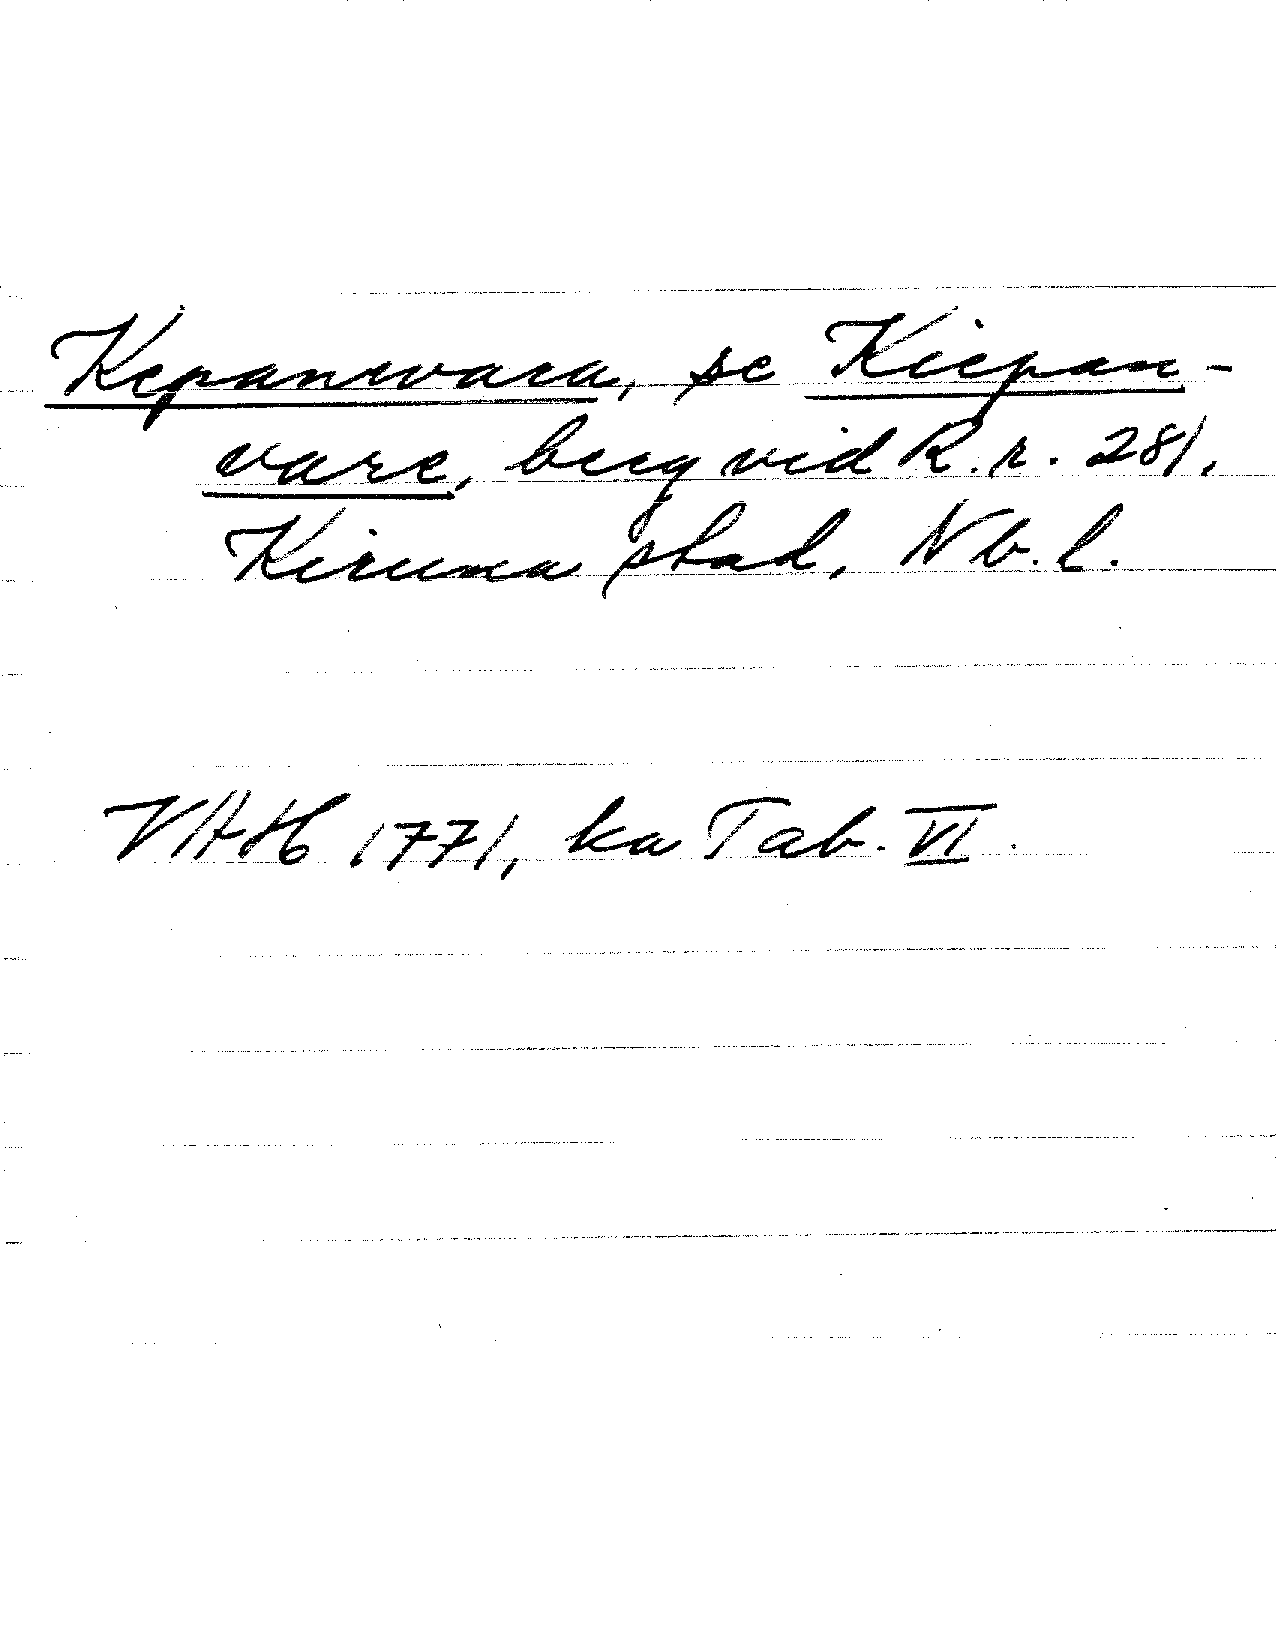 Kepanwara, se Kiepan-
vare, berg vid R.r. 281,
Kiruna stad, Nb.l.
VAH 1771, ka Tab. VI.